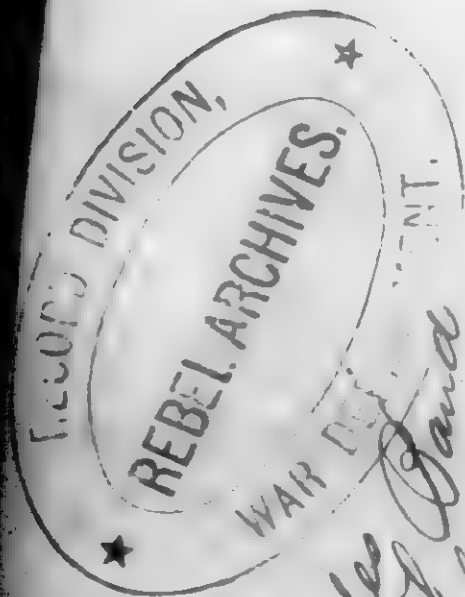 RECORD DIVISION,
REBEL ARCHIVES.
WAR DEPARTMENT.
Band